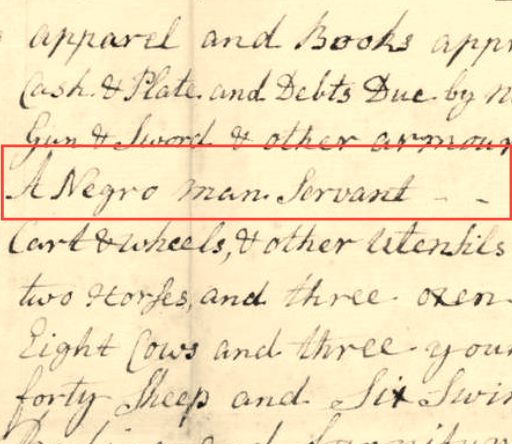 apparel and Books app
Cash & Plate and Debts Due by
Gun & Sword & other armour
A Negro man Servant - -
Cart & wheels, & other Utensils
two Horses, and three oxen
Eight Cows and three your
forty Sheep and Six Swin